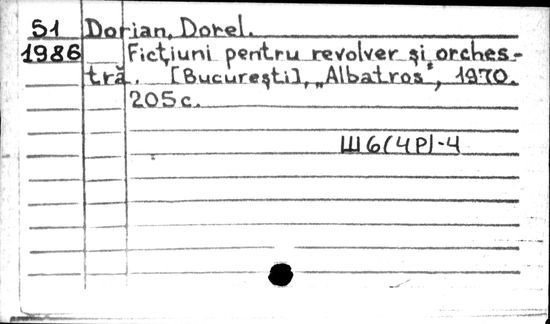 51 Dorian, Dorel.
1986 Ficţiuni pentru revolver şi orches-
tră. [Bucureşti], „Albatros”, 1970.
205 c.
Ш6(4Р)-4